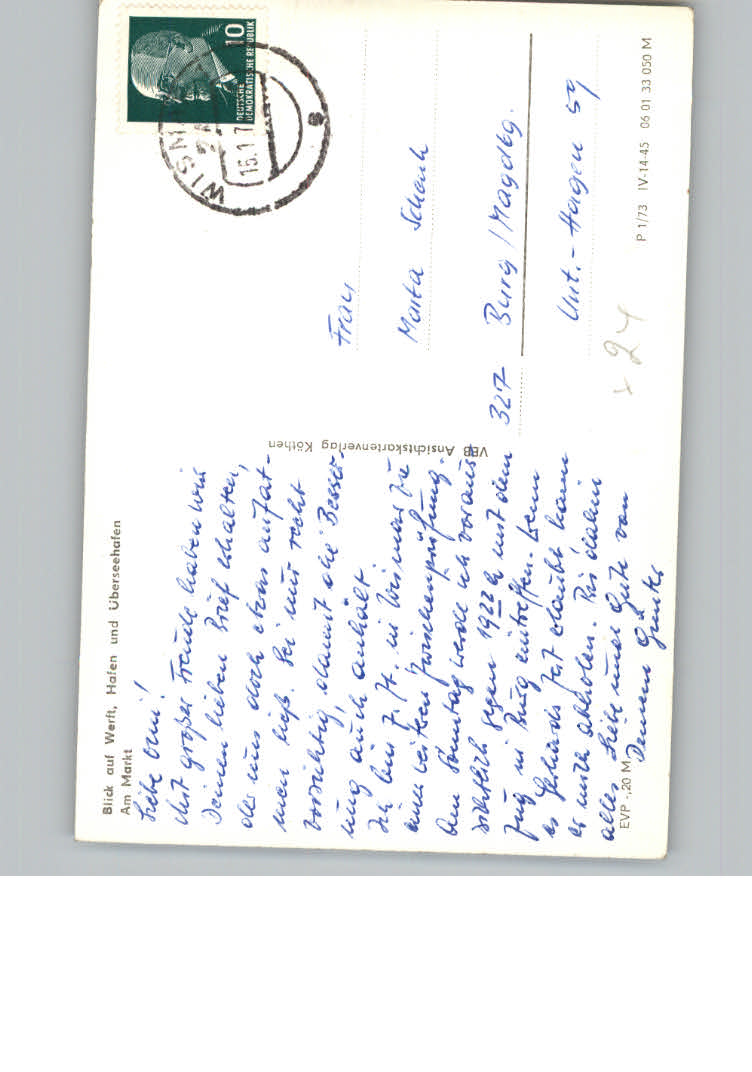 Blick auf Werft, Hafen und Überseehafen
Am Markt
Liebe Omi!
Mit großer Freude haben wir
Deinen lieben Brief erhalten,
der uns doch etwas aufat-
men ließ. Sei nur recht
vorsichtig, damit die Besser-
ung auch anhält.
Ich bin z. Zt. in Wismar zu
einer Zwischenprüfung.
Am Sonntag werde ich voraus-
sichtlich gegen 19 22 h mit dem
Zug in Burg eintreffen. Wenn
es Gerhards Zeit erlaubt kann
er mich abholen. Bis dahin
alles Liebe und Gute von
Deinem Günter
EVP -,20 M
VEB Ansichtskartenverlag Köthen
10
DEUTSCHE
DEMOKRATISCHE REPUBLIK
WISM
15.1.7
a
Frau
Marta Schenk
327 Burg / Magdbg.
Unt.-Hagen 59
24
P 1/73 IV-14-45 06 01 33 050 M